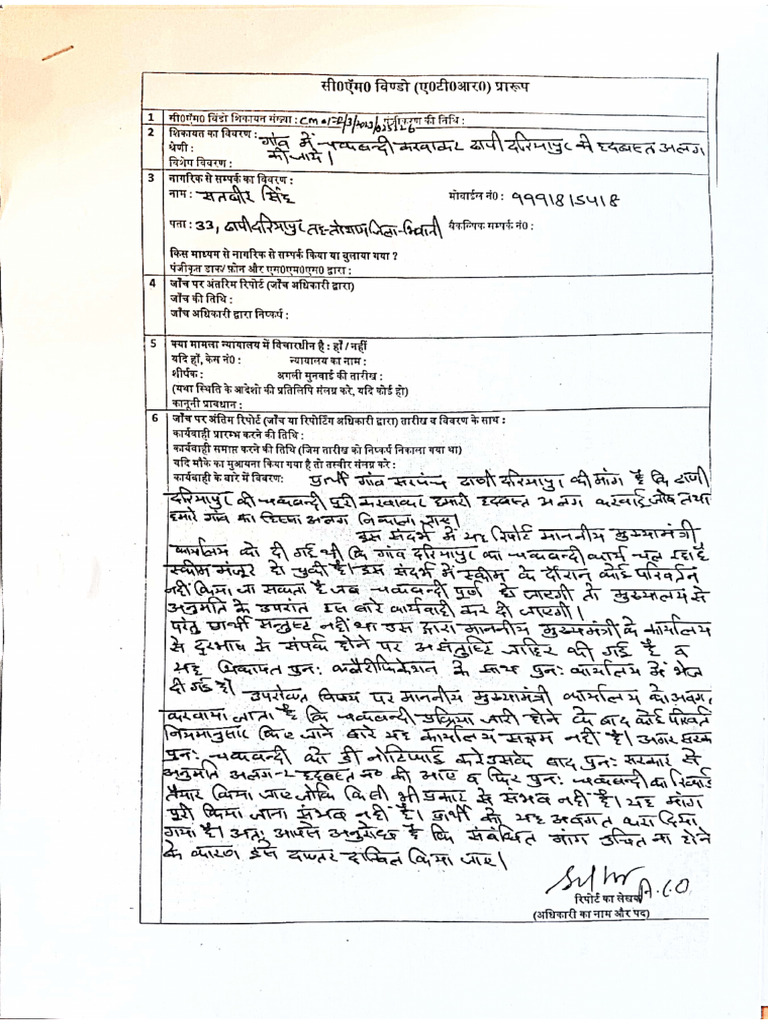 सी0ऍम0 विण्डो (ए0टी0आर0) प्रारूप
1 सी0ऍम0 विंडो शिकायत संख्या : पंजीकरण की तिथि :
2 शिकायत का विवरण : गांव में चकबन्दी करवाकर ढाणी दरियापुर की हदबस्त अलग
श्रेणी : की जाये।
विशेष विवरण :
3 नागरिक से सम्पर्क का विवरण :
नाम : सतबीर सिंह मोबाईल नं0 : 9991815418
पता : 33, ढाणी दरियापुर तह-तोशाम जिला-भिवानी वैकल्पिक सम्पर्क नं0 :
किस माध्यम से नागरिक से सम्पर्क किया या बुलाया गया ?
पंजीकृत डाक/ फ़ोन और एम0एम0एम0 द्वारा :
4 जाँच पर अंतरिम रिपोर्ट (जाँच अधिकारी द्वारा)
जाँच की तिथि :
जाँच अधिकारी द्वारा निष्कर्ष :
5 क्या मामला न्यायालय में विचारधीन है : हाँ / नहीं
यदि हाँ, केस नं0 : न्यायालय का नाम :
शीर्षक : अगली सुनवाई की तारीख :
(यथा स्थिति के आदेशो की प्रतिलिपि संलग्न करे, यदि कोई हो)
कानूनी प्रावधान :
6 जाँच पर अंतिम रिपोर्ट (जाँच या रिपोर्टिंग अधिकारी द्वारा) तारीख व विवरण के साथ :
कार्यवाही प्रारम्भ करने की तिथि :
कार्यवाही समाप्त करने की तिथि (जिस तारीख को निष्कर्ष निकाला गया था)
यदि मौके का मुआयना किया गया है तो तस्वीर संलग्न करे :
कार्यवाही के बारे में विवरण: प्रार्थी गांव सरपंच ढाणी दरियापुर की मांग है कि ढाणी
दरियापुर की चकबन्दी पूरी करवाकर हमारी हदबस्त अलग करवाई जाये तथा
हमारे गांव का हिस्सा अलग निकाला जाए।
इस संदर्भ में यह रिपोर्ट माननीय मुख्यामंत्री
कार्यालय को दी गई थी कि गांव दरियापुर का चकबन्दी कार्य चल रहा है
स्कीम मंजूर हो चुकी है। इस संदर्भ में स्कीम के दौरान कोई परिवर्तन
नहीं किया जा सकता है जब चकबन्दी पूर्ण हो जाएगी तो मुख्यालय से
अनुमति के उपरांत इस बारे कार्यवाही कर दी जाएगी।
परंतु प्रार्थी सन्तुष्ट नहीं था उस द्वारा माननीय मुख्यमंत्री के कार्यालय
से दुरभाष से संपर्क होने पर असंतुष्टि जाहिर की गई है व
यह शिकायत पुनः क्लैरीफिकेशन के साथ पुनः कार्यालय में भेज
दी गई है।
उपरोक्त विषय पर माननीय मुख्यामंत्री कार्यालय को अवगत
करवाया जाता है कि चकबन्दी प्रक्रिया जारी होने के बाद कोई परिवर्तन
नियमानुसार किए जाने बारे यह कार्यालय सक्षम नहीं है। अगर सरकार
पुनः चकबन्दी को डी नोटिफाई करे उसके बाद पुनः सरकार से
अनुमति अलग-2 हदबस्त न0 की आए व फिर पुनः चकबन्दी का रिकार्ड
तैयार किया जाए जोकि किसी भी प्रकार से संभव नहीं है। यह मांग
पूरी किया जाना संभव नहीं है। प्रार्थी को यह अवगत करा दिया
गया है। अतः आपसे अनुरोध है कि संबंधित मांग उचित ना होने
के कारण इसे दफ्तर दाखिल किया जाए।
रिपोर्ट का लेखक
(अधिकारी का नाम और पद)